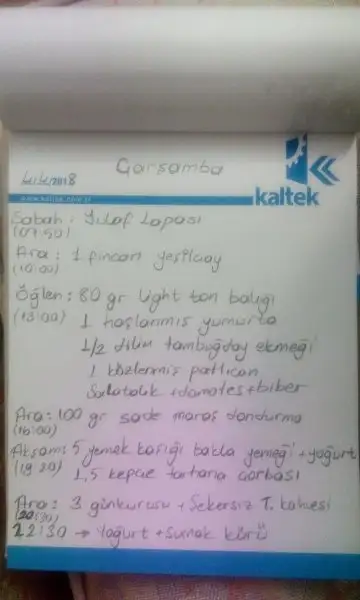 Çarşamba
4/4/2018
kaltek
Sabah : Yulaf Lapası
(07:50)
Ara : 1 fincan yeşilçay
(10:00)
Öğlen : 80 gr light ton balığı
(13:00) 1 haşlanmış yumurta
1/2 dilim tambuğday ekmeği
1 közlenmiş patlıcan
Salatalık + domates + biber
Ara : 100 gr sade maraş dondurma
(16:00)
Akşam : 5 yemek kaşığı bakla yemeği + yoğurt
(19:30) 1,5 kepçe tarhana çorbası
Ara : 3 günkurusu + Şekersiz T. kahvesi
(20:30)
22:30 → Yoğurt + Sumak kürü